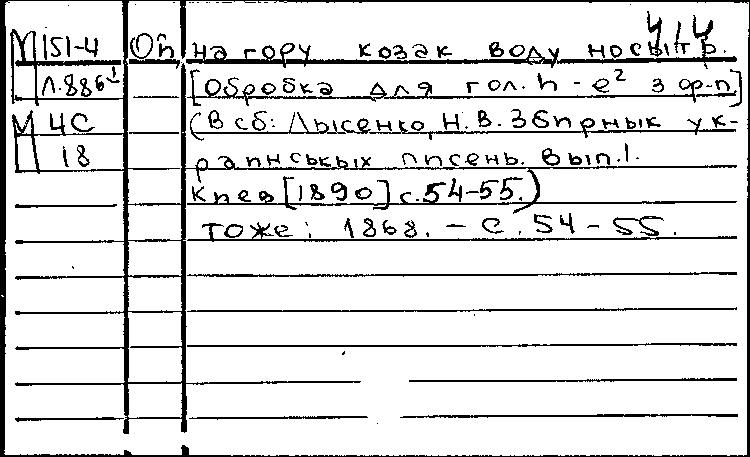 У1У
М 151-4 Oh, на гору козак воду носытр.
Л.886¹ [Обробка для гол. h - e² з ф-п]
М 4С (В сб: Лысенко, Н. В. Збирнык ук-
18 раинськых писень. Вып. 1.
Киев [1890] с. 54-55.)
тоже: 1868. - С. 54 - 55.